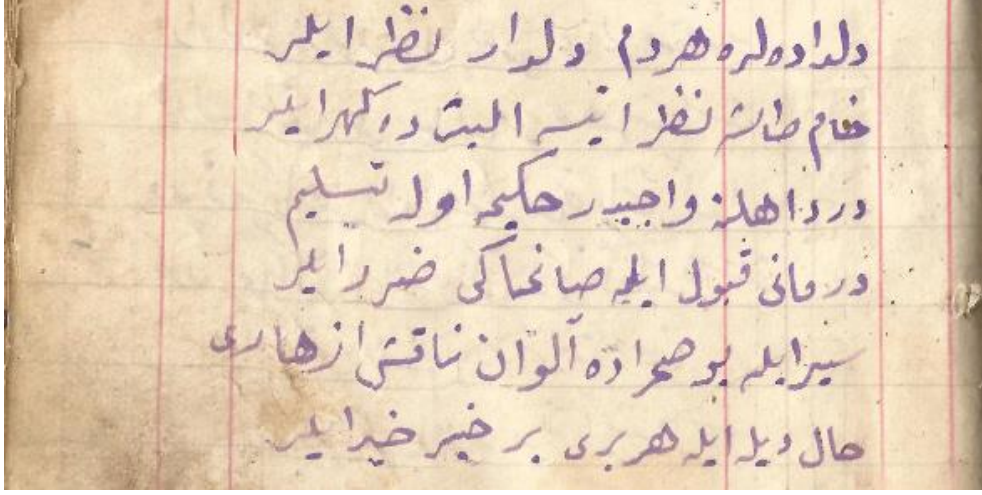 دلداده لره هردم دلدار نظر ایلر
خام طاشه نظر ایتسه البت در کهر ایلر
درد اهلنه واجبدر حکیمه اول تسلیم
درمانی قبول ایله صانما کی ضرر ایلر
سیر ایله بو صحراده آلوان ناقش ازهاری
حال دیله ایله هر بری بر خبر ایلر